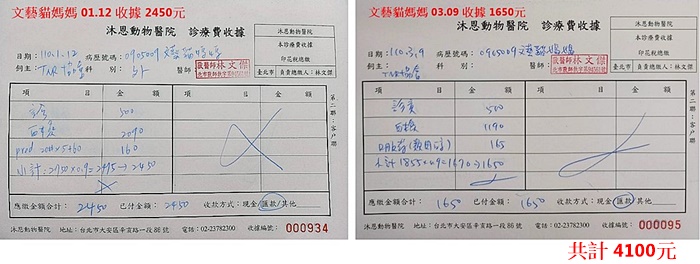 文藝貓媽媽 01.12 收據 2450元
沐恩動物醫院 診療費收據
本診療費收據
印花稅總繳
臺北市 負責總繳人:林文傑
日期:110.1.12 病歷號碼:0905009 文藝貓媽媽
飼主:TNR協會 科別: 外 醫師:
獸醫師林文傑
項目 金額 項目 金額
診 500
2090
pred 160
小計:2750×0.9=2475→2450
應繳金額合計: 2450 已付金額: 2450 收款方式:現金/匯款/其他
沐恩動物醫院 地址:台北市大安區辛亥路一段86號 電話:02-23782300 收據編號: 000934
第二聯:客戶聯
文藝貓媽媽 03.09 收據 1650元
沐恩動物醫院 診療費收據
本診療費收據
印花稅總繳
臺北市 負責總繳人:林文傑
日期:110.3.9 病歷號碼:0905009 文藝貓媽媽
飼主:TNR協會 科別: 醫師:
獸醫師林文傑
項目 金額 項目 金額
診察 500
1190
165
小計1855×0.9=1670→1650
應繳金額合計: 1650 已付金額: 1650 收款方式:現金/匯款/其他
沐恩動物醫院 地址:台北市大安區辛亥路一段86號 電話:02-23782300 收據編號: 000095
第二聯:客戶聯
共計 4100元